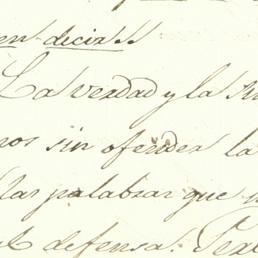 en decir
La verdad y la
nos sin ofender la
las palabras que
defensa.